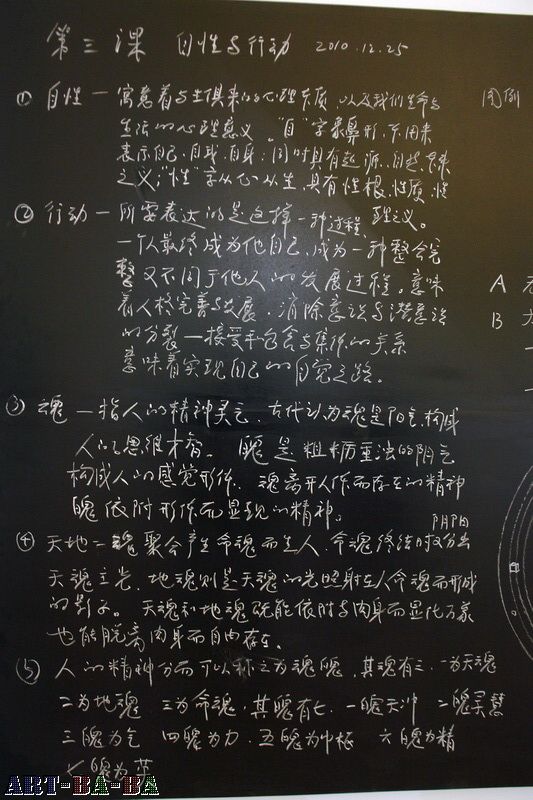 第三课 自性与行动 2010.12.25
① 自性—寓意着与生俱来的心理本质,以及我们生命与
图例
生活的心理意义。"自"字象鼻形,常用来
表示自己,自我,自身;同时具有起源,自然,本来
之义;"性"字从心从生,具有性根,性质,性
理之义。
② 行动—所要表达的是这样一种过程,
一个人最终成为他自己,成为一种整合完
整又不同于他人的发展过程。意味
着人格完善与发展,消除意识与潜意识
的分裂—接受和包含与集体的关系
意味着实现自己的自觉之路。
A
B
③ 魂—指人的精神灵气,古代认为魂是阳气,构成
人的思维才智。魄是粗粝重浊的阴气
构成人的感觉形体。魂离开人体而存在的精神
魄依附形体而显现的精神。
阴阳
④ 天地二魂聚合产生命魂而生人,命魂终结时又分出
天魂主光,地魂则是天魂的光照射在人命魂而形成
的影子。天魂和地魂既能依附与肉身而显化万象
也能脱离肉身而自由存在。
⑤ 人的精神分而可以称之为魂魄,其魂有三,一为天魂
二为地魂 三为命魂,其魄有七,一魄天冲 二魄灵慧
三魄为气 四魄为力 五魄为中枢 六魄为精
七魄为英
ART-BA-BA